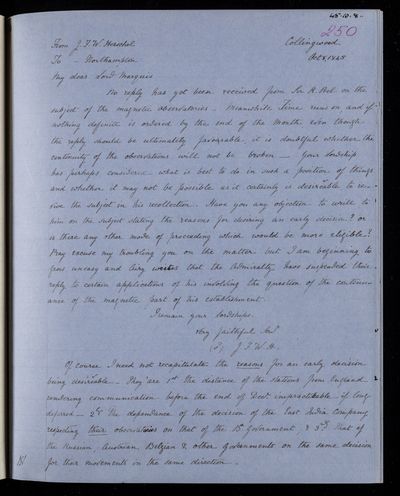 45-10-8-
250
From J. F. W. Herschel Collingwood
To - Northampton Oct 8, 1845
My dear Lord Marquis
No reply has yet been received from Sir R. Peel on the
subject of the magnetic observatories - Meanwhile Time runs on and if
nothing definite is ordered by the end of the Month even though
the reply should be ultimately favourable, it is doubtful whether the
continuity of the observations will not be broken - Your lordship
has perhaps considered what is best to do in such a position of things
and whether it may not be possible as it certainly is desireable to re-
vive the subject in his recollection. Have you any objection to write to
him on the subject stating the reasons for desiring an early decision? or
is there any other mode of proceeding which would be more eligible?
Pray excuse my troubling you on the matter but I am beginning to
grow uneasy and that the Admiralty have suspended their
reply to certain applications of his involving the question of the continu-
ance of the magnetic part of his establishment.
I remain your lordships
very faithful
(S) J. F. W. H.
Of course I need not recapitulate the reasons for an early decision
being desireable - They are 1st the distance of the stations from England
rendering communication before the end of Decr. impracticable if long
deferred - 2d. The dependance of the decision of the East India Company
respecting their observatories on that of the B. Government, & 3d. that of
the Russian, Austrian, Belgian & other Governments on the same decision
for their movements in the same direction -